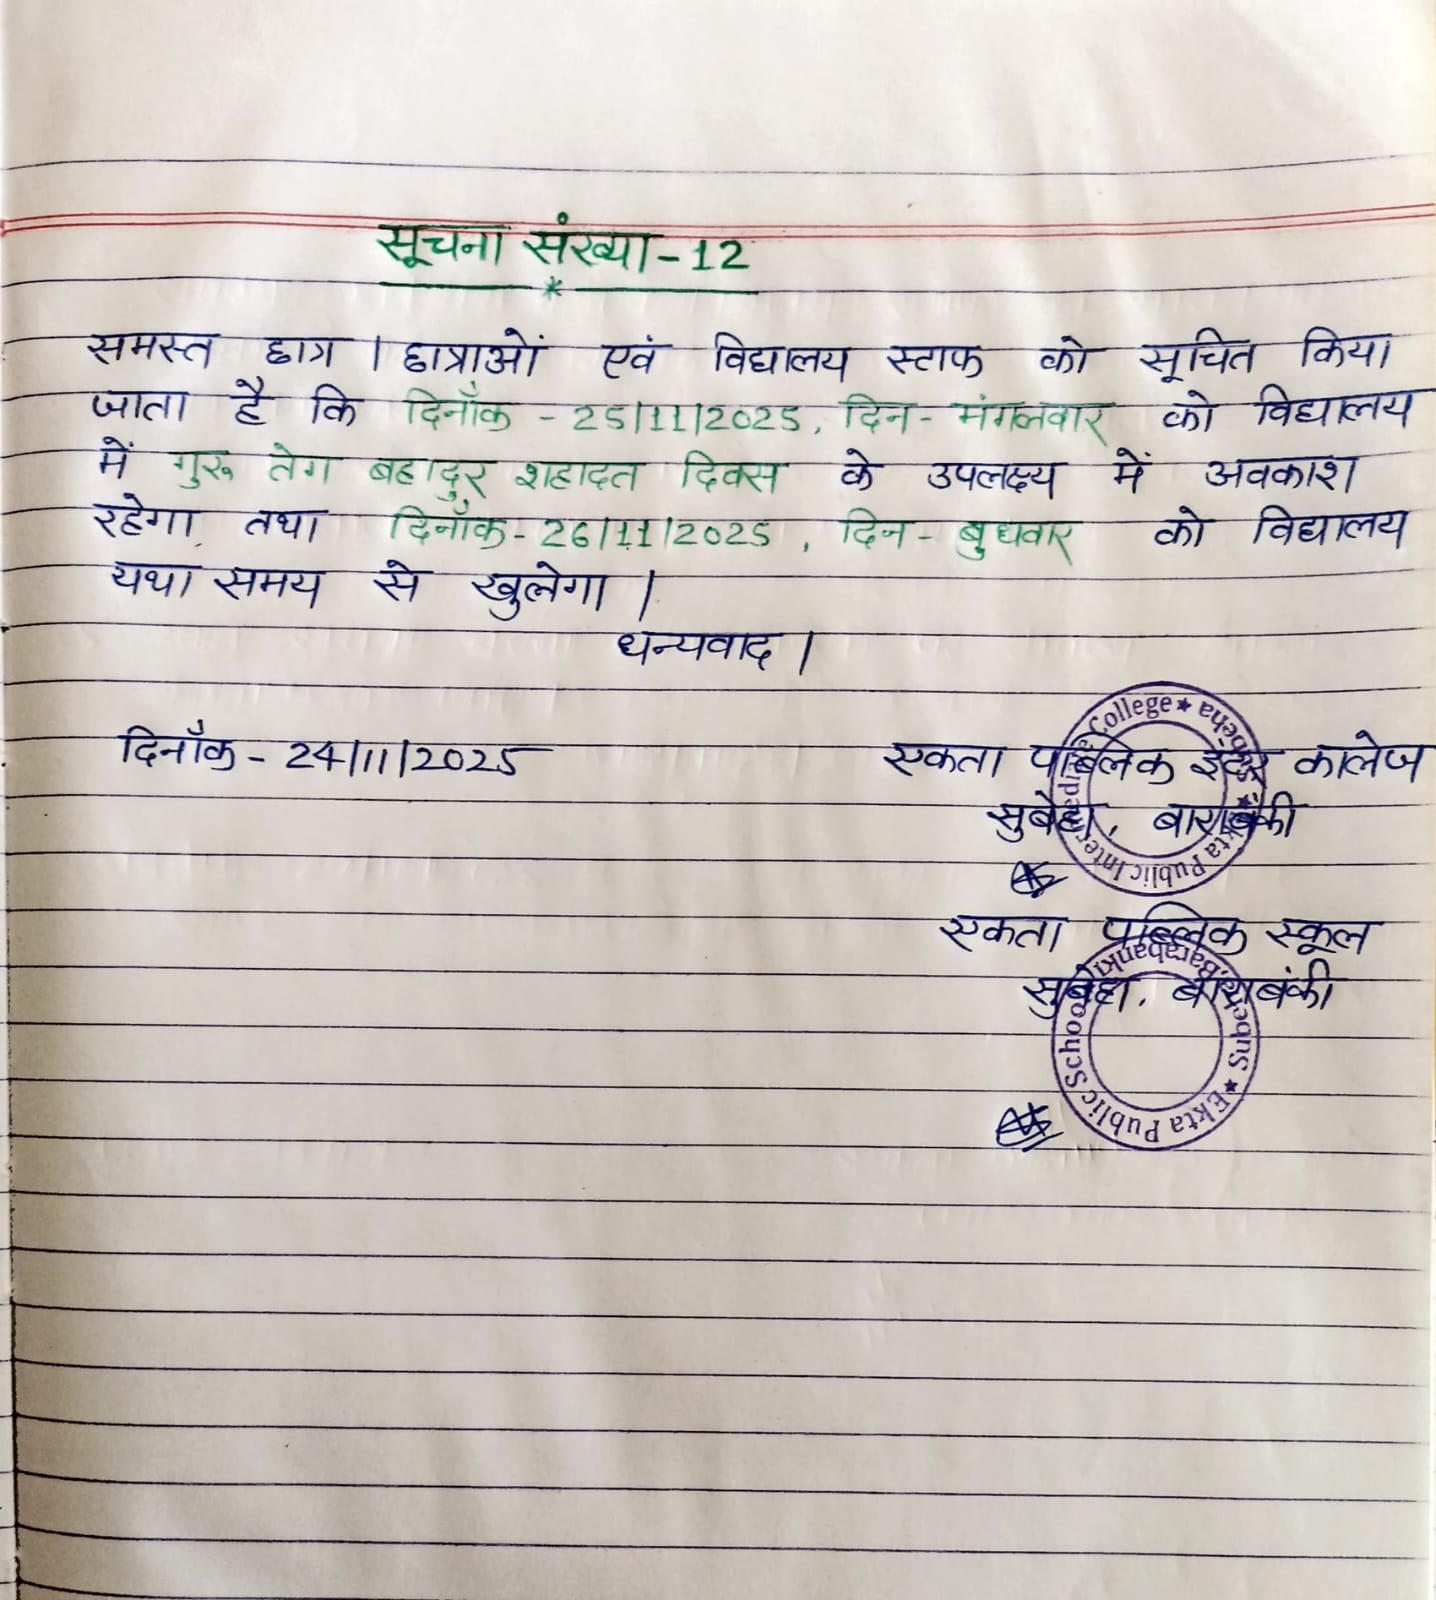 सूचना संख्या-12
समस्त छात्र / छात्राओं एवं विद्यालय स्टाफ को सूचित किया
जाता है कि दिनाँक - 25/11/2025, दिन- मंगलवार को विद्यालय
में गुरू तेग बहादुर शहादत दिवस के उपलक्ष्य में अवकाश
रहेगा तथा दिनाँक-26/11/2025, दिन- बुधवार को विद्यालय
यथा समय से खुलेगा ।
धन्यवाद ।
दिनाँक - 24/11/2025
एकता पब्लिक इंटर कालेज
सुबेहा, बाराबंकी
एकता पब्लिक स्कूल
सुबेहा, बाराबंकी
Ekta Public Intermediate College ★ Subeha ★
★ Ekta Public School Subeha, Barabanki